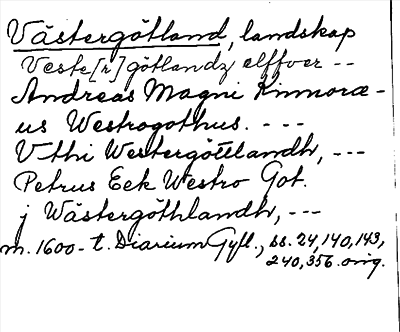 Västergötland, landskap
Veste[r]götlandz elffver --
Andreas Magni Kinnoræ-
us Westrogothus. ---
Vthi Westergöttlandh, ---
Petrus Eek Westro Got.
j Wästergöthlandh, ---
m. 1600-t. Diarium Gyll., ss. 24, 140, 143,
240, 356. orig.